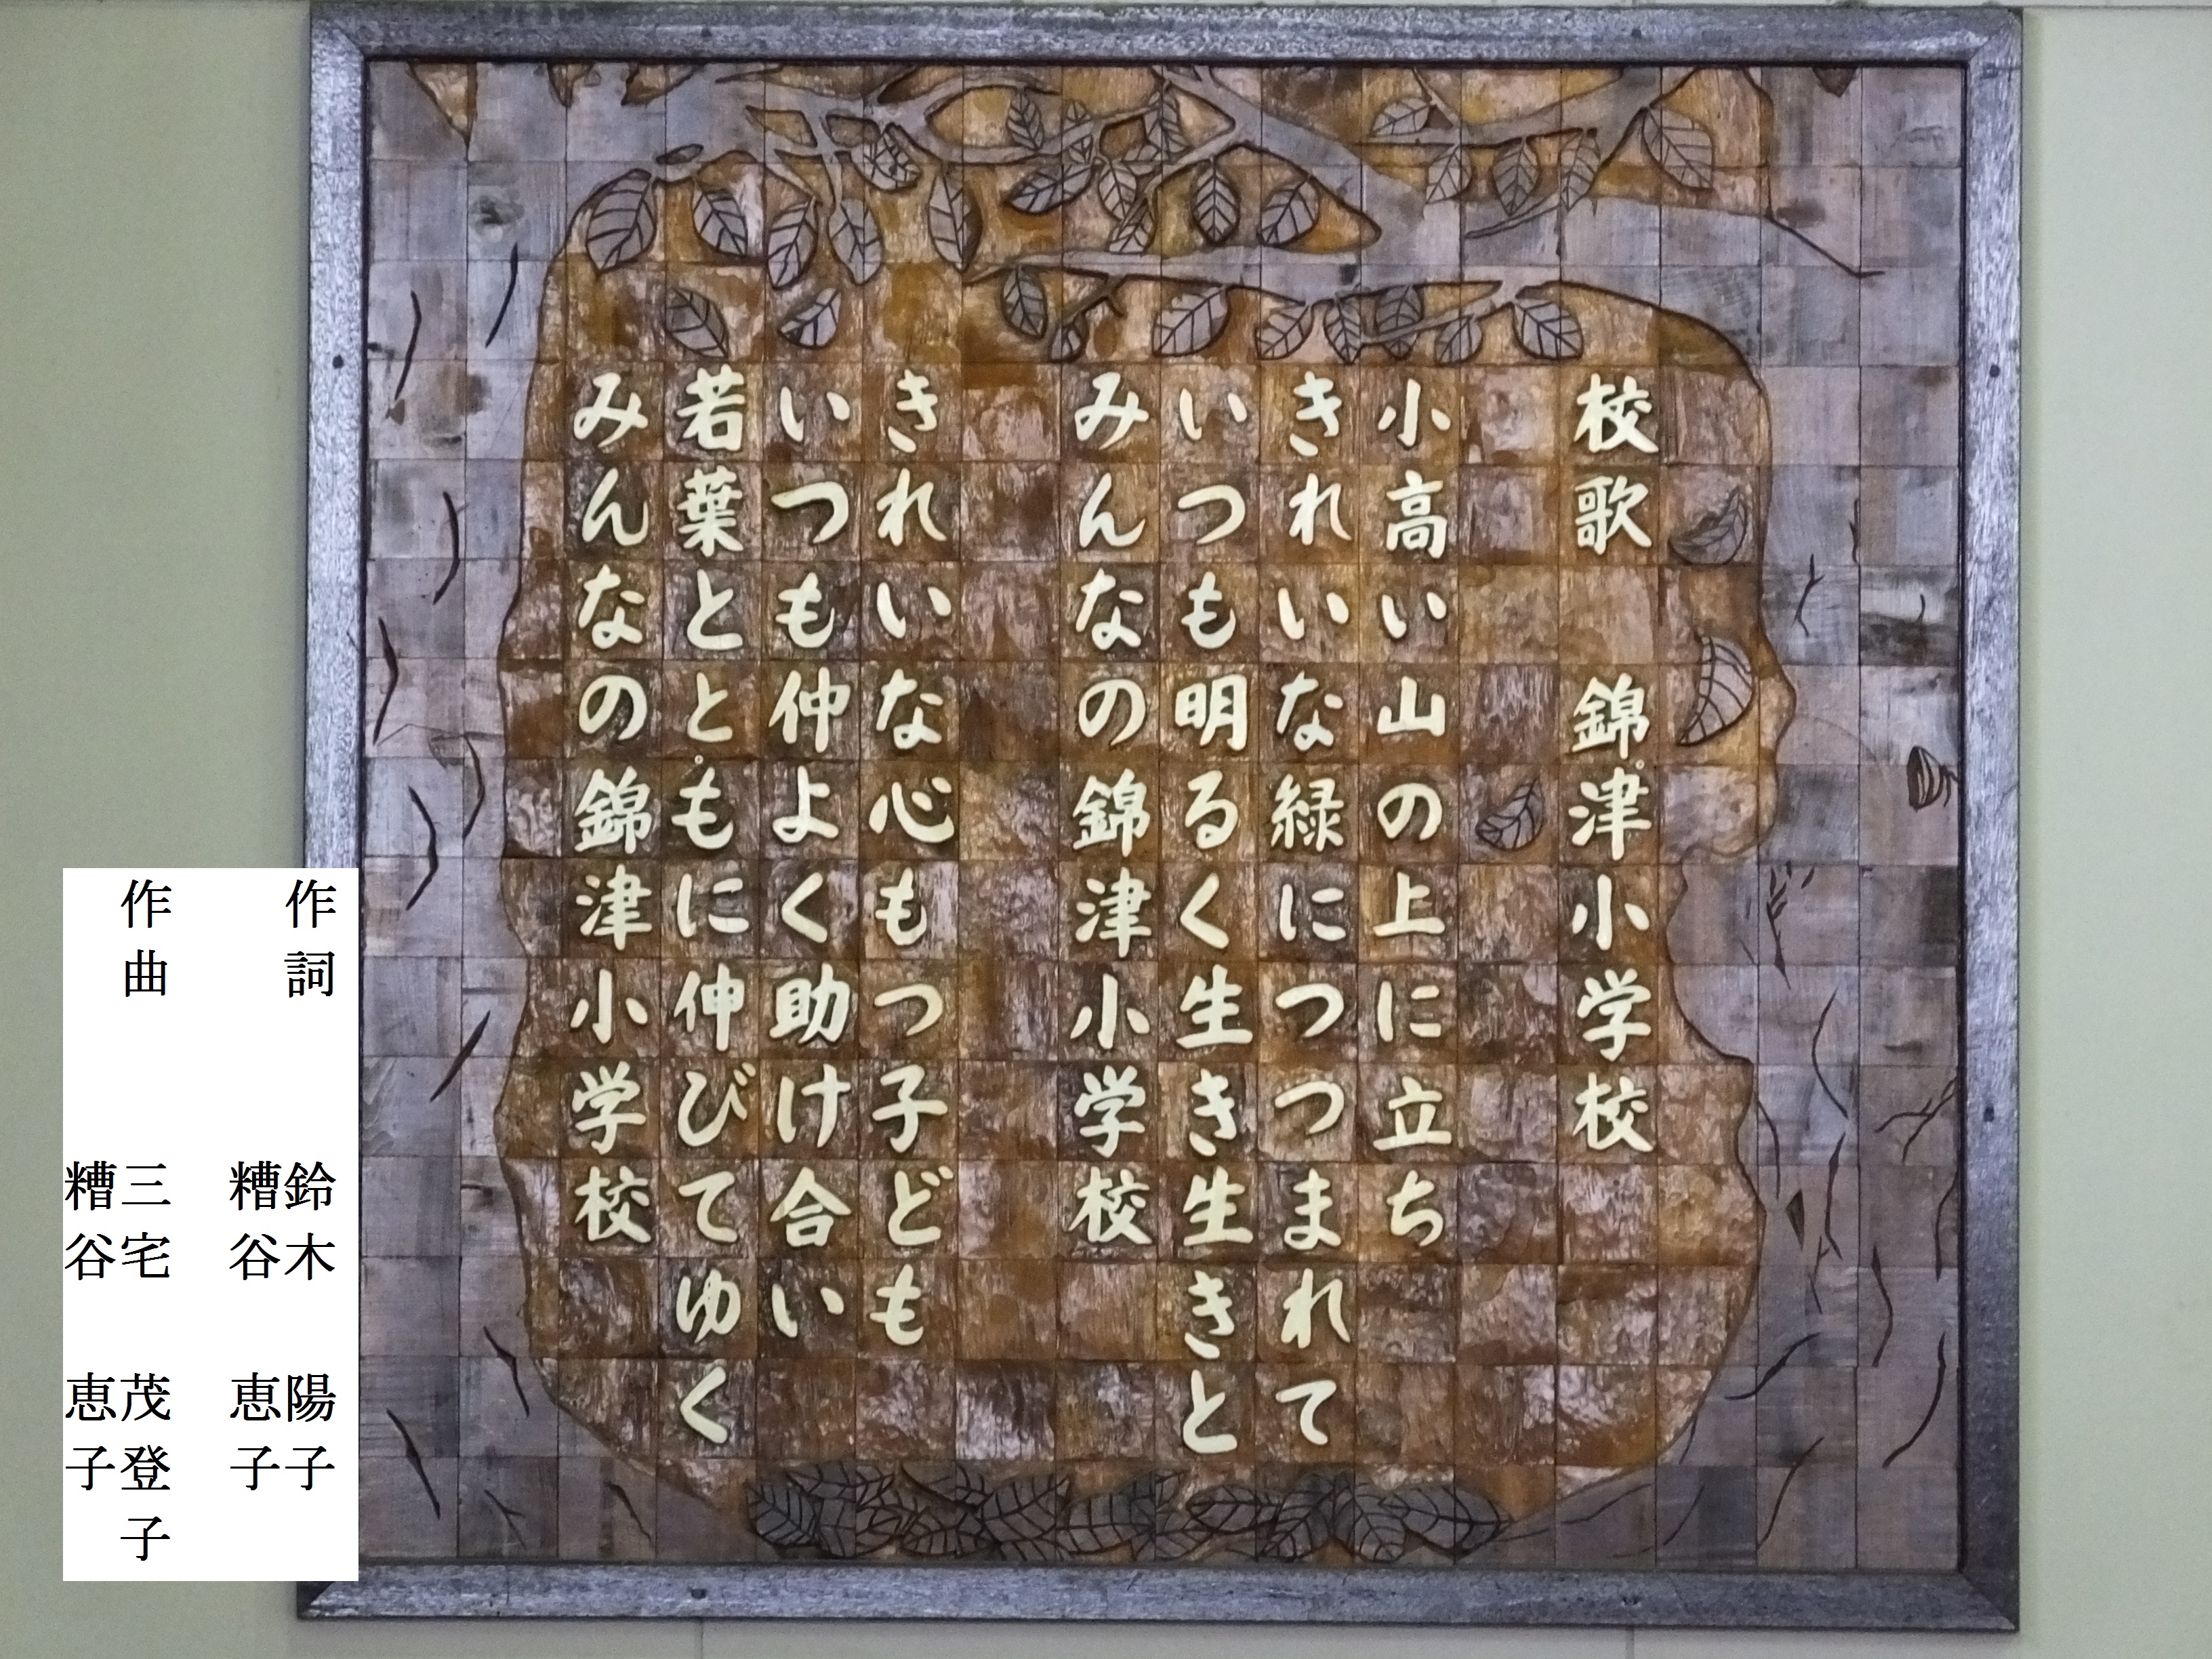 校歌　錦津小学校
小高い山の上に立ち
きれいな緑につつまれて
いつも明るく生き生きと
みんなの錦津小学校
きれいな心もつ子ども
いつも仲よく助け合い
若葉とともに伸びてゆく
みんなの錦津小学校
作詞　鈴木　陽子
糟谷　恵子
作曲　三宅　茂登子
糟谷　恵子